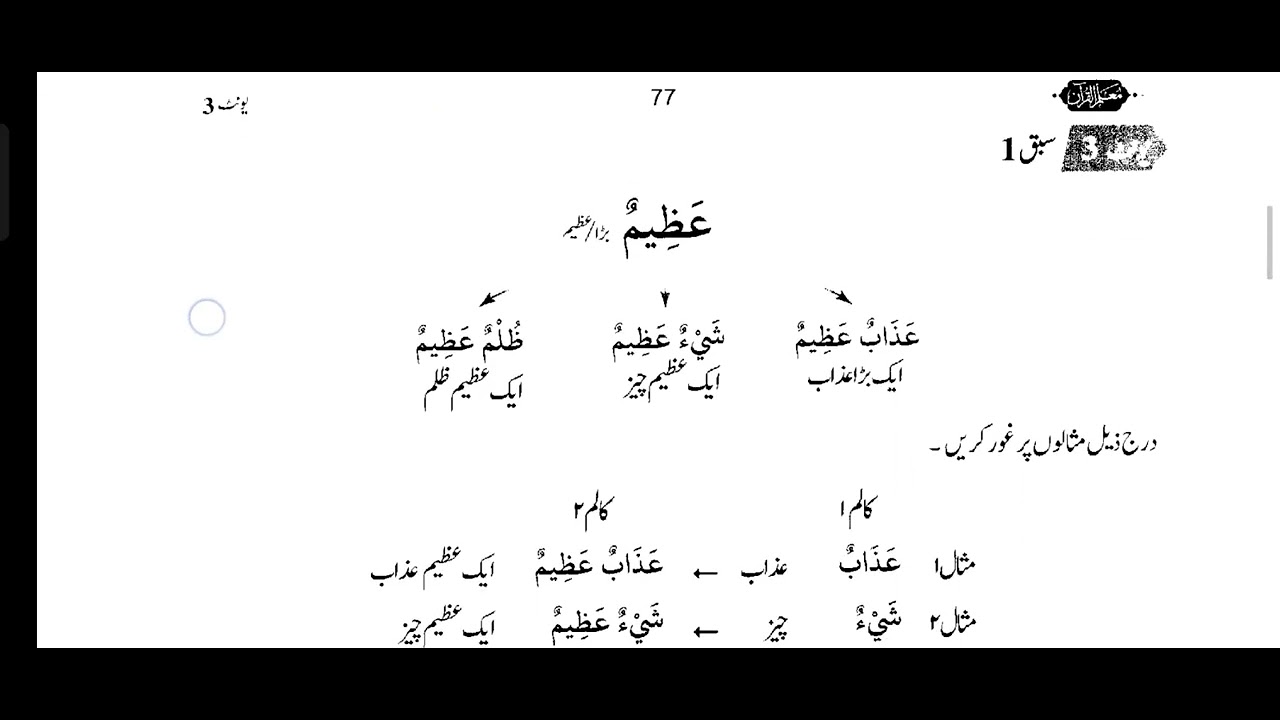 معلم القرآن 77 یونٹ 3
یونٹ 3 سبق 1
عَظِيمٌ بڑا/عظیم
عَذَابٌ عَظِيمٌ شَيْءٌ عَظِيمٌ ظُلْمٌ عَظِيمٌ
ایک بڑا عذاب ایک عظیم چیز ایک عظیم ظلم
درج ذیل مثالوں پر غور کریں ۔
کالم ۱ کالم ۲
مثال ۱ عَذَابٌ عذاب ← عَذَابٌ عَظِيمٌ ایک عظیم عذاب
مثال ۲ شَيْءٌ چیز ← شَيْءٌ عَظِيمٌ ایک عظیم چیز